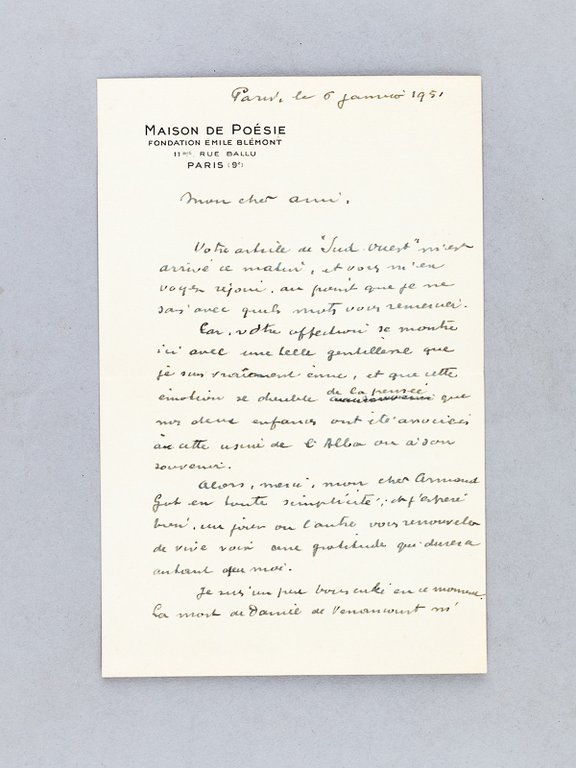 Paris, le 6 janvier 1951
MAISON DE POÉSIE
FONDATION EMILE BLÉMONT
11 BIS, RUE BALLU
PARIS (9e)
Mon cher ami,
Votre article de "Sud-Ouest" m'est
arrivé ce matin, et vous m'en
voyez réjoui, au point que je ne
sais avec quels mots vous remercier.
Car, votre affection se montre
ici avec une telle gentillesse que
je suis vraiment ému, et que cette
émotion se double de la pensée que
nos deux enfances ont été associées
à cette usine de l'Alba ou à son
souvenir.
Alors, merci, mon cher Armand
Got en toute simplicité; et j'espère
bien, un jour ou l'autre vous renouveler
de vive voix une gratitude qui durera
autant que moi.
Je suis un peu bousculé en ce moment.
La mort de Daniel de Venancourt m'